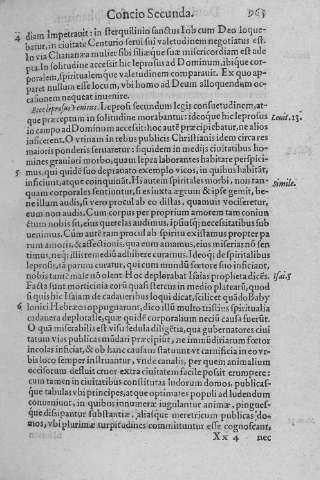 Concio Secunda. 963
4 diam Impetrauit: in sterquilinio sanctus Iob cum Deo loque-
batur, in ciuitate Centurio serui sui valetudinem negotiatus est.
In via Chananæa mulier sibi filiæque suæ misericordiam est ade
pta. In solitudine accessit hic leprosus ad Dominum, ibique cor-
poralem, spiritualemque valetudinem comparauit. Ex quo ap-
paret nullum esse locum, vbi homo ad Deum alloquendum oc-
casionem nequeat inuenire.
Ecce leprosus veniens. Leprosi secundum legis consuetudinem, at-
que præceptum in solitudine morabantur: ideoque hic leprosus Leuit. 13.
in campo ad Dominum accessit: hoc autē præcipiebatur, ne alios
inficerent. O vtinam in rebus publicis Christianis idem circa res
maioris ponderis seruaretur: siquidem in medijs ciuitatibus ho-
mines grauiori morbo, quam lepra laborantes habitare perspici-
5 mus, qui quidē suo deprauato exemplo vicos, in quibus habitāt,
inficiunt, atque coinquināt. Hi autem spiritales morbi, non tan- Simile.
quam corporales sentiuntur, si es iuxta ægrum & ipse gemit, be-
ne illum audis, si vero procul ab eo distas, quamuis vociferetur,
eum non audis. Cum corpus per proprium amorem tam coniun
ctum nobis sit, eius querelas audimus, ipsiusq; necessitatibus sub
uenimus. Cum autē tam procul ab spiritu existamus propter pa
rum amoris, & affectionis, qua eum amamus, eius miserias nō sen
timus, neq; illis remediū adhibere curamus. Ideoq; de spiritalibus
leprosis, tā parum curatur, qui cum mundū fœtore suo inficiant,
nobis tamē male nō olent. Hoc deplorabat Isaias propheta dicēs. Isai. 5
Facta sunt morticinia eorū quasi stercus in medio platearū, quod
si quis hic Isaiam de cadaueribus loqui dicat, scilicet quādo Baby
6 lonici Hebræos oppugnarunt, dico illū multo tristius spiritualia
cadauera deplorasse, quæ quidē corporalium necis causā fuerūt.
O quā miserabilis est visu sedula diligētia, qua gubernatores ciui
tatum vias publicas mūdari præcipiūt, ne immūditiarum fœtor
incolas inficiat, & ob hanc causam statuunt vt carnificia in eo vr-
bis loco semper instruantur, vnde canalis, per quem animalium
occisorum defluit cruor extra ciuitatem facile possit erumpere:
cum tamen in ciuitatibus constitutas ludorum domos, publicas-
que tabulas vbi principes, atque optimates populi ad ludendum
conueniunt, in quibus innumeræ iugulantur animæ, pingues-
que dissipantur substantiæ, aliasque meretricum publicas do-
mos, vbi plurimæ turpitudines committuntur esse cognoscant,
Xx 4 nec